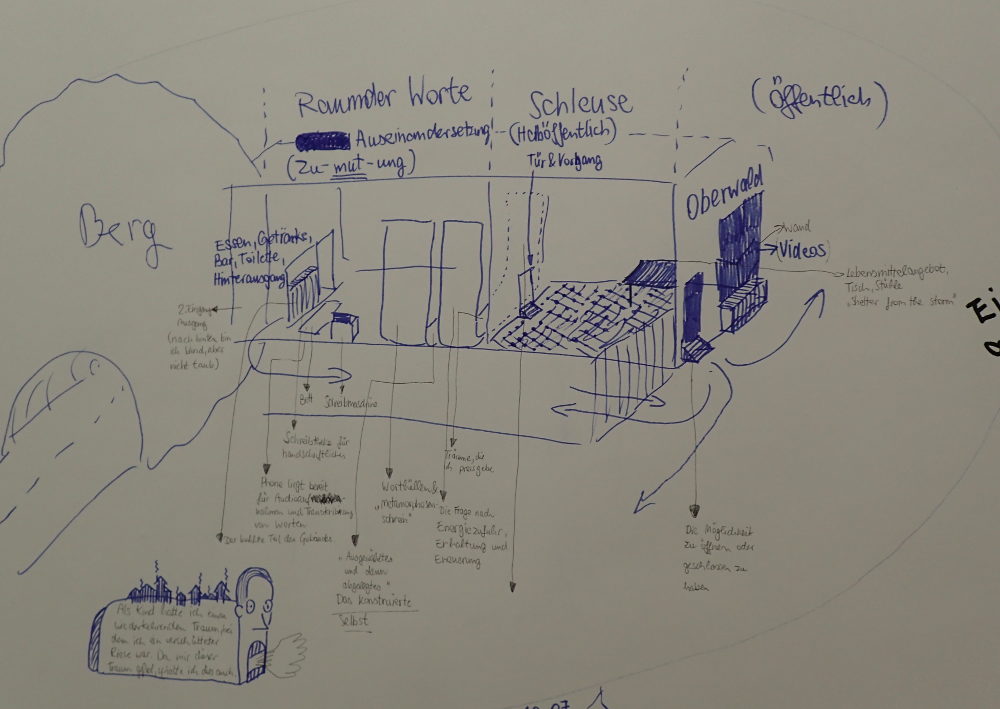 Raum der Worte
Auseinandersetzung
(Zu-mut-ung)
Schleuse
(Halböffentlich)
Tür & Vorhang
(Öffentlich)
Berg
Essen, Getränke,
Bar, Toilette,
Hinterausgang
2. Eingang
Ausgang
(nach hinten bin
ich blind, aber
nicht taub)
Oberwald
Wand
Videos
Lebensmittelangebot,
Tisch, Stühle
„Shelter from the storm"
Ei
Bett
Schreibmaschine
für
handschriftliches
Phone liegt bereit
für Audioauf
nahmen und Transkribierung
von Worten
Der Teil des Gebäudes
Worthüllen &
„metamorphosen-
schrein"
Träume, die
ich preisgebe
Die Frage nach
Energiezufuhr,
Erhaltung und
Erneuerung
„Ausgewähltes
und dann
abgelegtes"
Das konstruierte
Selbst
Die Möglichkeit
zu öffnen oder
geschlossen zu
haben
Als Kind hatte ich einen
wiederkehrenden Traum, bei
dem ich ein verschütteter
Riese war. Da mir dieser
Traum gefiel, ich das auch.
07